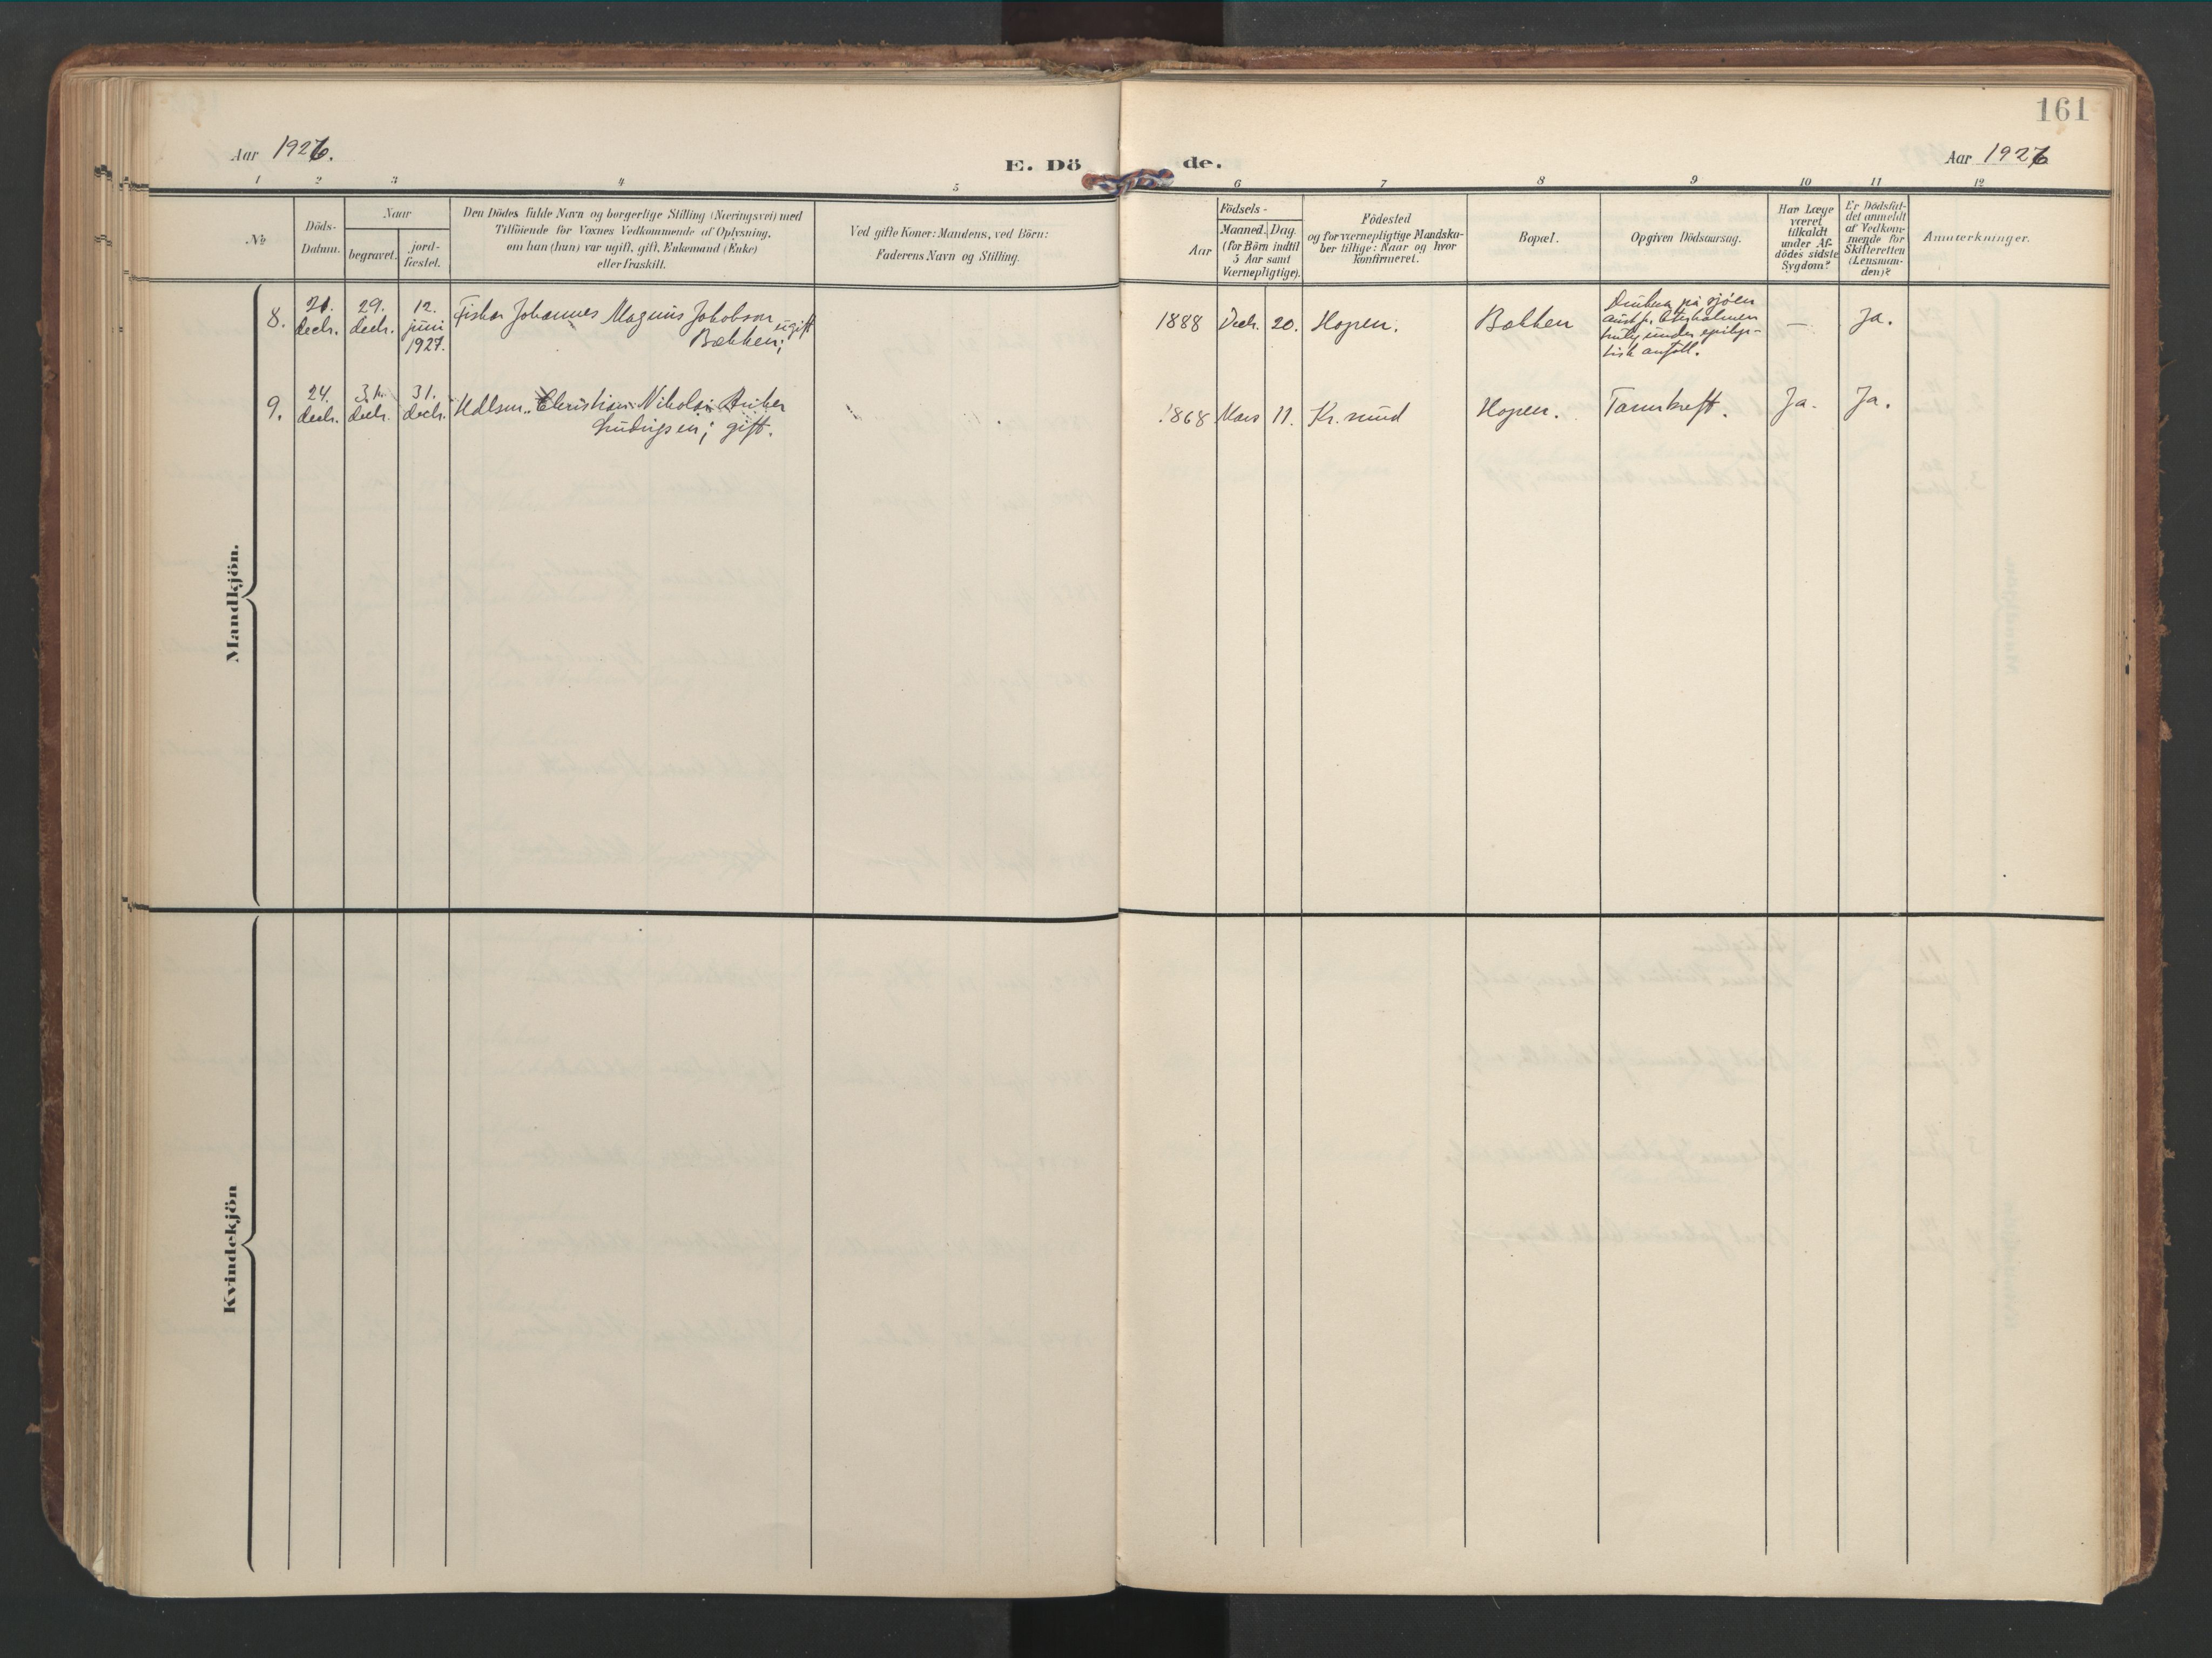 161
Aar 1926.
E. Dö de.
Aar 1926
1 2 3 4 5 6 7 8 9 10 11 12
№
Döds-
Datum.
Naar
begravet.
jord-
fæstet.
Den Dödes fulde Navn og borgerlige Stilling (Næringsvei) med
Tilföiende for Voxnes Vedkommende af Oplysning,
om han (hun) var ugift, gift, Enkemand (Enke)
eller fraskilt.
Ved gifte Koner: Mandens, ved Börn:
Faderens Navn og Stilling.
Födsels-
Aar
Maaned.
Dag.
(for Börn indtil
5 Aar samt
Værnepligtige).
Födested
og for værnepligtige Mandska-
ber tillige: Naar og hvor
konfirmeret.
Bopæl.
Opgiven Dödsaarsag.
Har Læge
været
tilkaldt
under Af-
dödes sidste
Sygdom?
Er Dödsfal-
det anmeldt
af Vedkom-
mende for
Skifteretten
(Lensman-
den)?
Anmærkninger.
Mandkjön.
8.
21.
decbr.
29.
decbr.
12.
juni
1927.
Fisker Johannes Magnus Jakobson
Bækken; ugift
1888
Decbr.
20.
Hopen.
Bækken
på sjöen
under epilep-
tisk anfall.
—
Ja.
9.
24.
decbr.
31.
decbr.
31.
decbr.
Christian Nikolai
Ludvigsen; gift.
1868
Mars
11.
Kr.sund
Hopen.
Tarmkreft.
Ja.
Ja.
Kvindekjön